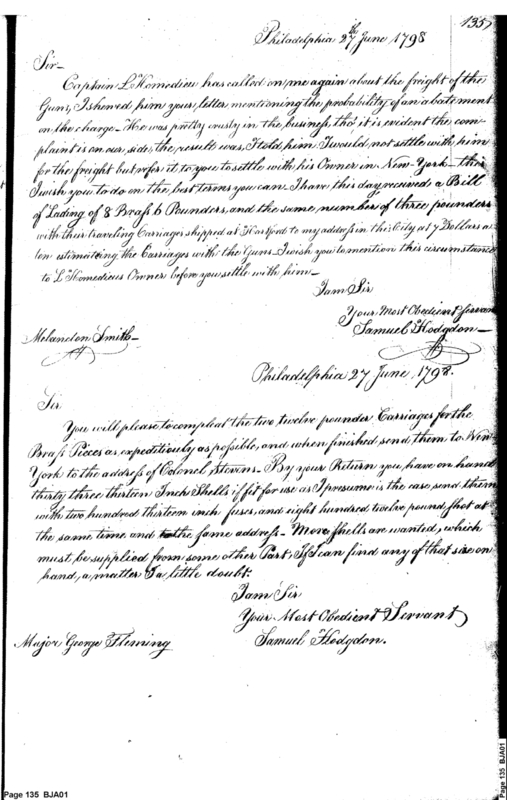 135
Philadelphia 27th June 1798
Sir-
Captain L'Homedieu has called on me again about the freight of the
Guns, I shewed him your letter mentioning the probability of an abatement
on the charge - He was pretty crusty in the business, tho' it is evident the com-
plaint is on our side, the result was, I told him I would not settle with him
for the freight but refer it to you to settle with his Owner in New-York - this
I wish you to do on the best terms you can. I have this day received a Bill
of Lading of 8 Brass 6 Pounders, and the same number of three pounders
with their traveling Carriages shipped at Hartford to my address in this City at 7 Dollars a
ton estimating the Carriages with the Guns - I wish you to mention this circumstance
to L'Homedieus Owner before you settle with him -
I am Sir
Your Most Obedient Servan
Samuel Hodgdon -
Melancton Smith -
Philadelphia 27 June 1798.
Sir
You will please to compleat the two twelve pounder Carriages for the
Brass Pieces as expeditiously as possible, and when finished send them to New
York to the address of Colonel Stevens - By your Return you have on hand
thirty three thirteen Inch Shells if fit for use as I presume is the case, send them
with two hundred thirteen inch fuses, and eight hundred twelve pound shot at
the same time and to the same address - More shells are wanted, which
must be supplied from some other Part, If I can find any of that size on
hand, a matter I a little doubt.
I am Sir
Your Most Obedient Servant
Samuel Hodgdon.
Major George Fleming
Page 135 BJA01
Page 135 BJA01